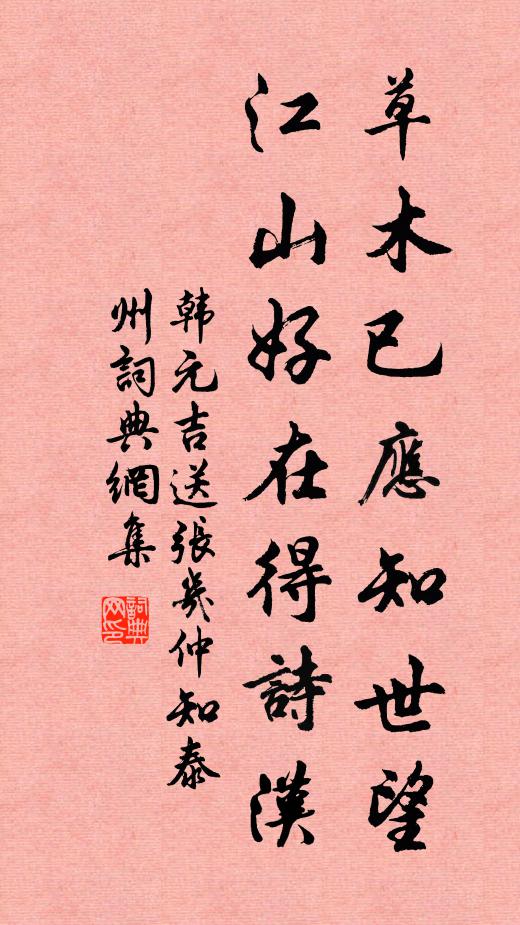 草木已應知世望
江山好在得詩漢
韩元吉送張幾仲知泰
州詞典網集
詞典网印